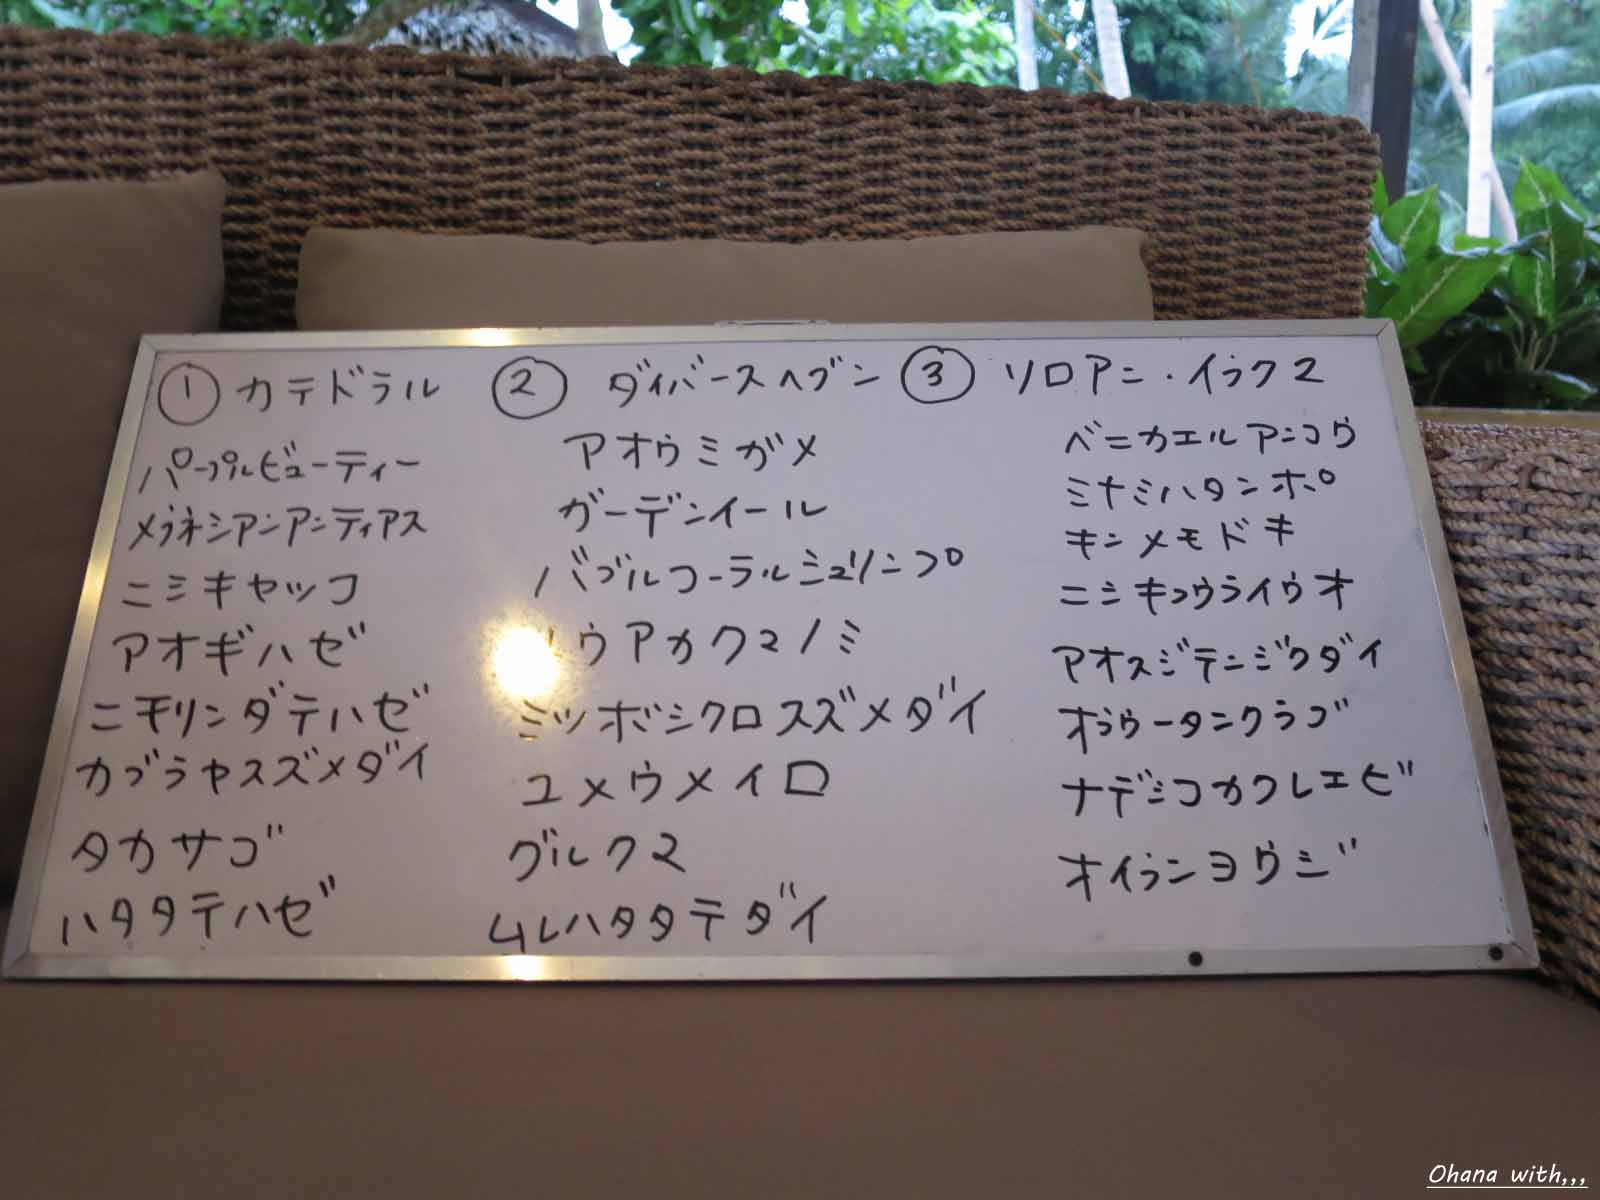 ① カテドラル
パープルビューティー
メラネシアンアンティアス
ニシキヤッコ
アオギハゼ
ニチリンダテハゼ
カブラヤスズメダイ
タカサゴ
ハタタテハゼ
② ダイバースヘブン
アオウミガメ
ガーデンイール
バブルコーラルシュリンプ
ウアカクマノミ
ミツボシクロスズメダイ
ユメウメイロ
グルクマ
ムレハタタテダイ
③ ソロアニ・イラクマ
ベニカエルアンコウ
ミナミハタンポ
キンメモドキ
ニシキフウライウオ
アオスジテンジクダイ
オラウータンクラブ
ナデシコカクレエビ
オイランヨウジ
Ohana with,,,